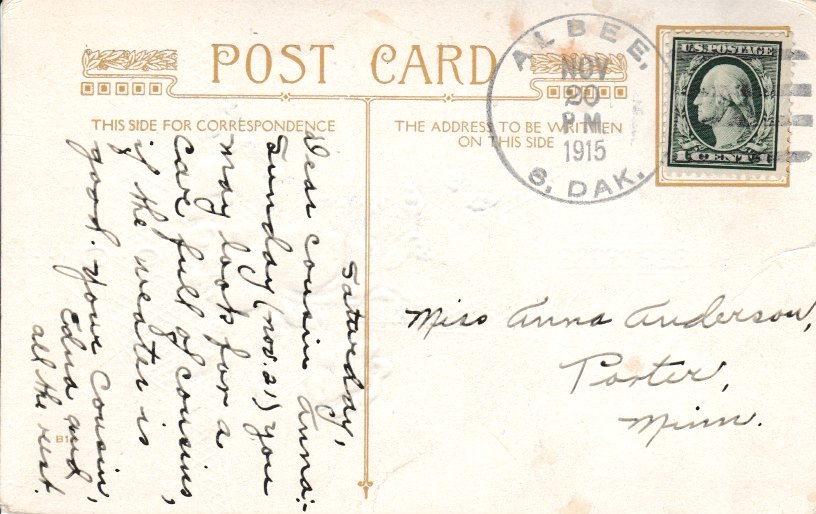 POST CARD
THIS SIDE FOR CORRESPONDENCE
THE ADDRESS TO BE WRITTEN
ON THIS SIDE
ALBEE,
NOV
20
P.M
1915
S. DAK.
U.S. POSTAGE
1 CENT 1
Saturday,
Dear Cousin Anna:-
Sunday (nov. 21) you
may look for a
car full of cousins,
if the weater is
good. your Cousin,
Edna and
all the rest.
Miss Anna Anderson,
Porter,
Minn.